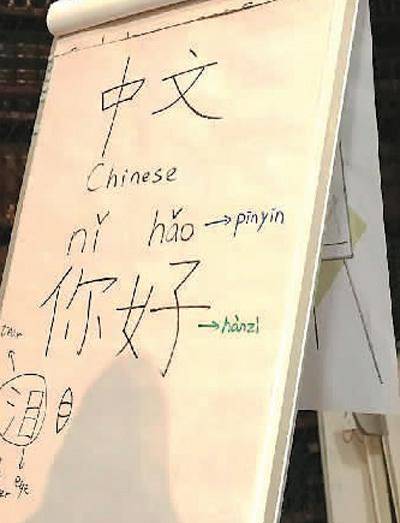 中文
Chinese
nǐ hǎo → pīnyīn
你好 → hànzì
泪 目
eye